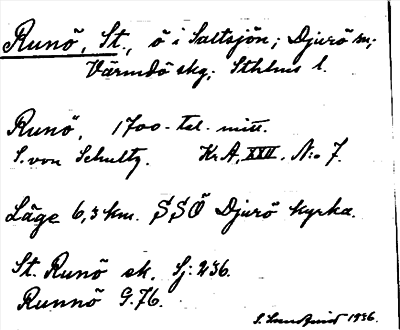 Runö, St., ö i Saltsjön; Djurö sn;
Värmdö skg; Sthlms l.
Runö, 1700-tal. mitt.
S. von Schultz. Kr.A. XVII. N:o 7.
Läge 6,3 km. SSÖ Djurö kyrka.
St. Runö sk. Sj: 236.
Runnö G.76.
S. 1936.